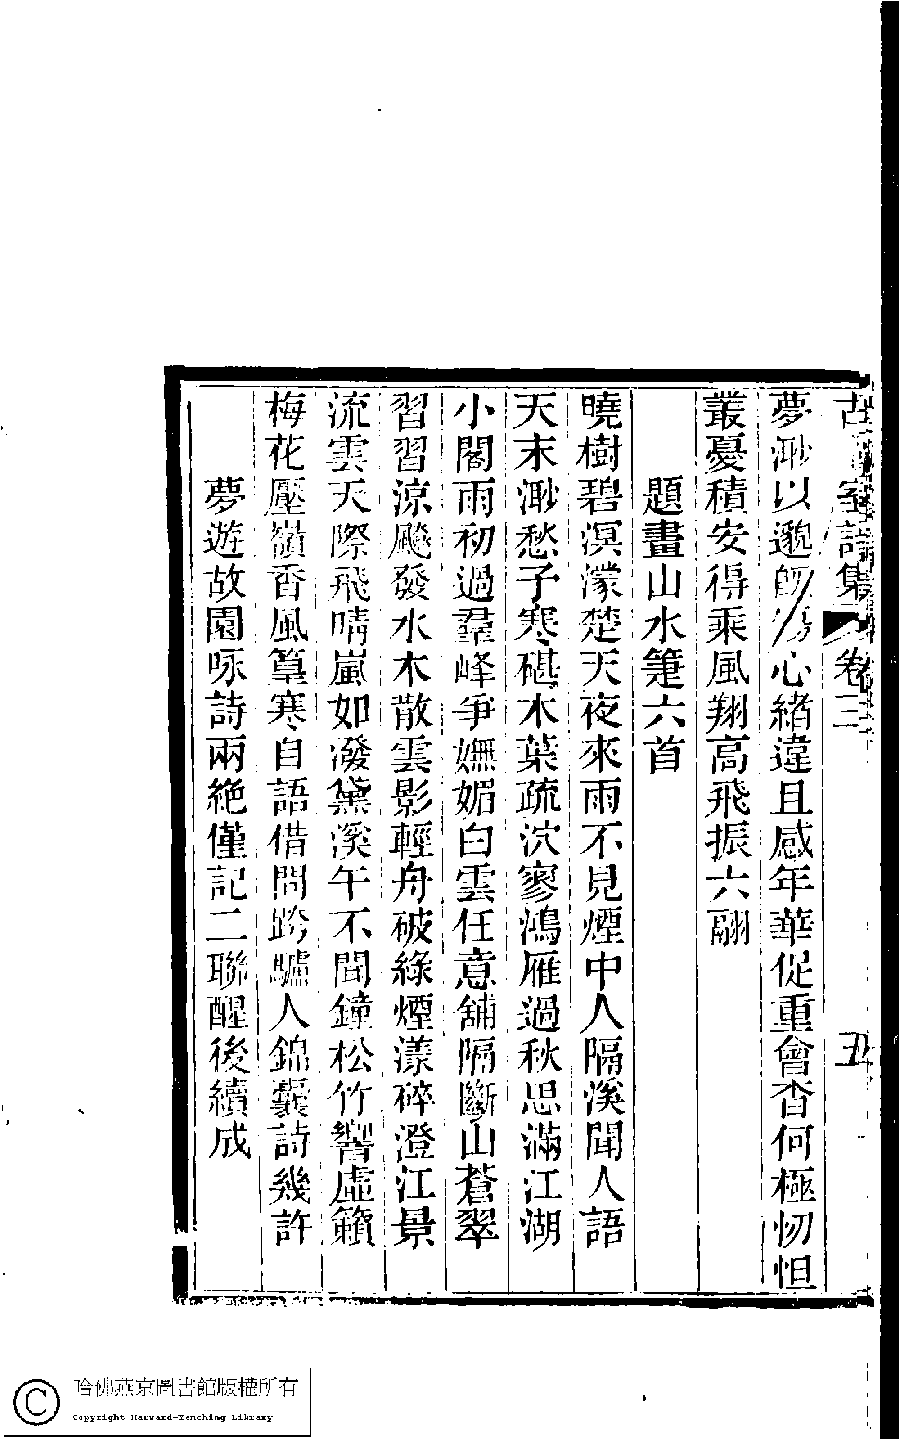 古 室詩集 卷三 五
夢渺以邈 心緒違且感年華促重會杳何極忉怛
叢憂積安得乘風翔高飛振六翮
題畫山水箑六首
曉樹碧溟濛楚天夜來雨不見煙中人隔溪聞人語
天末渺愁予寒碪木葉疏泬寥鴻雁過秋思滿江湖
小閣雨初過羣峰爭嫵媚白雲任意舖隔斷山蒼翠
習習涼飈發水木散雲影輕舟破綠煙漾碎澄江景
流雲天際飛晴嵐如潑黛溪午不聞鐘松竹響虛籟
梅花壓嶺香風篁寒自語借問跨驢人錦囊詩幾許
夢遊故園咏詩兩絶僅記二聯醒後續成
哈佛燕京圖書館版權所有
Copyright Harvard-Yenching Library